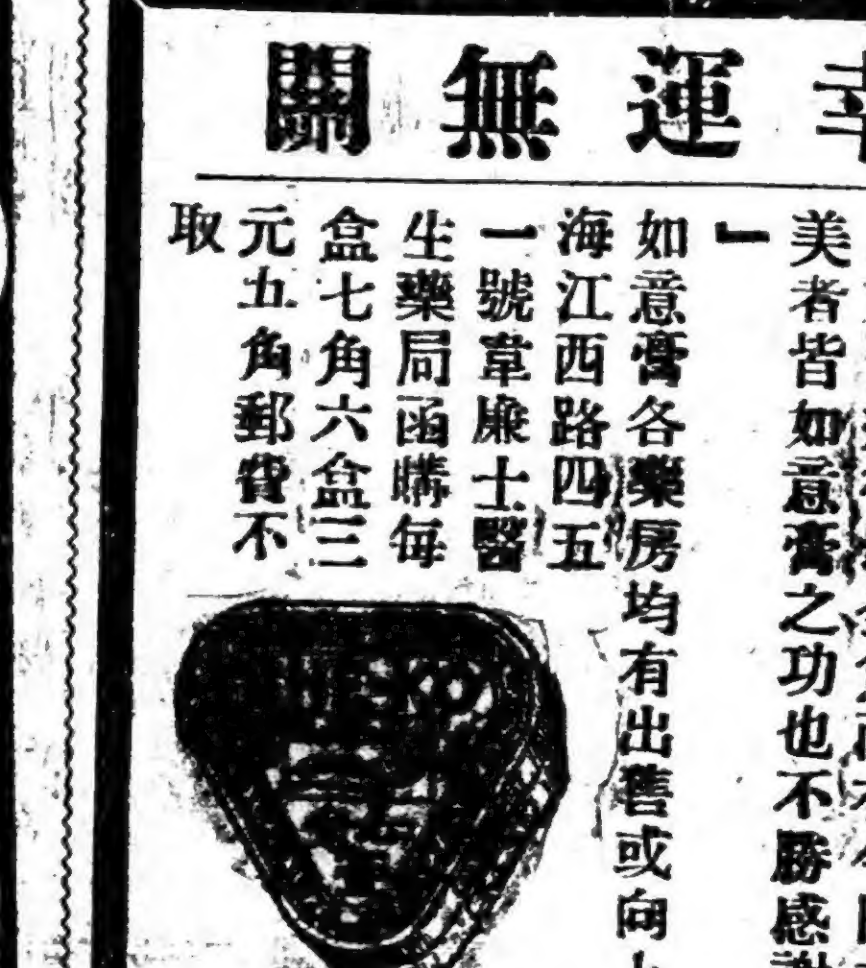 運無關
美者皆如意膏之功也不勝感謝
」
如意膏各藥房均有出售或向上
海江西路四五
一號韋廉士醫
生藥局函購每
盒七角六盒三
元五角郵費不
取